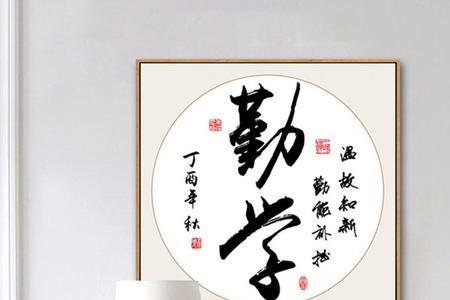 温故知新
勤能补拙
勤学
丁酉年秋